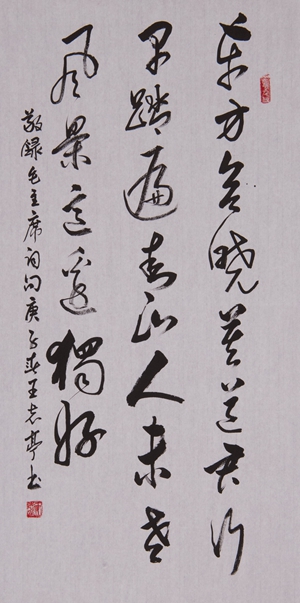 东方欲晓莫道君行
早踏遍青山人未老
风景这边獨好
敬録毛主席词句庚子春王志亭书